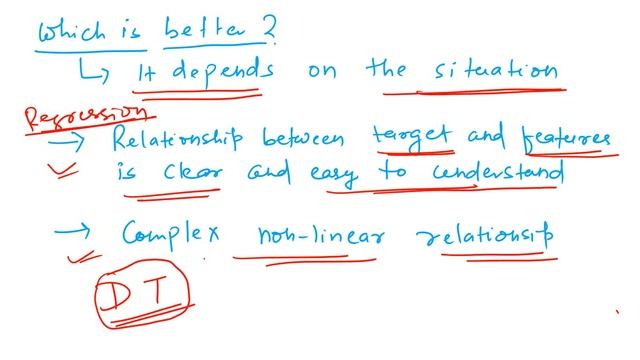 Which is better?
↳ It depends on the situation
Regression
→ Relationship between target and features
is clear and easy to understand
→ Complex non-linear relationship
DT